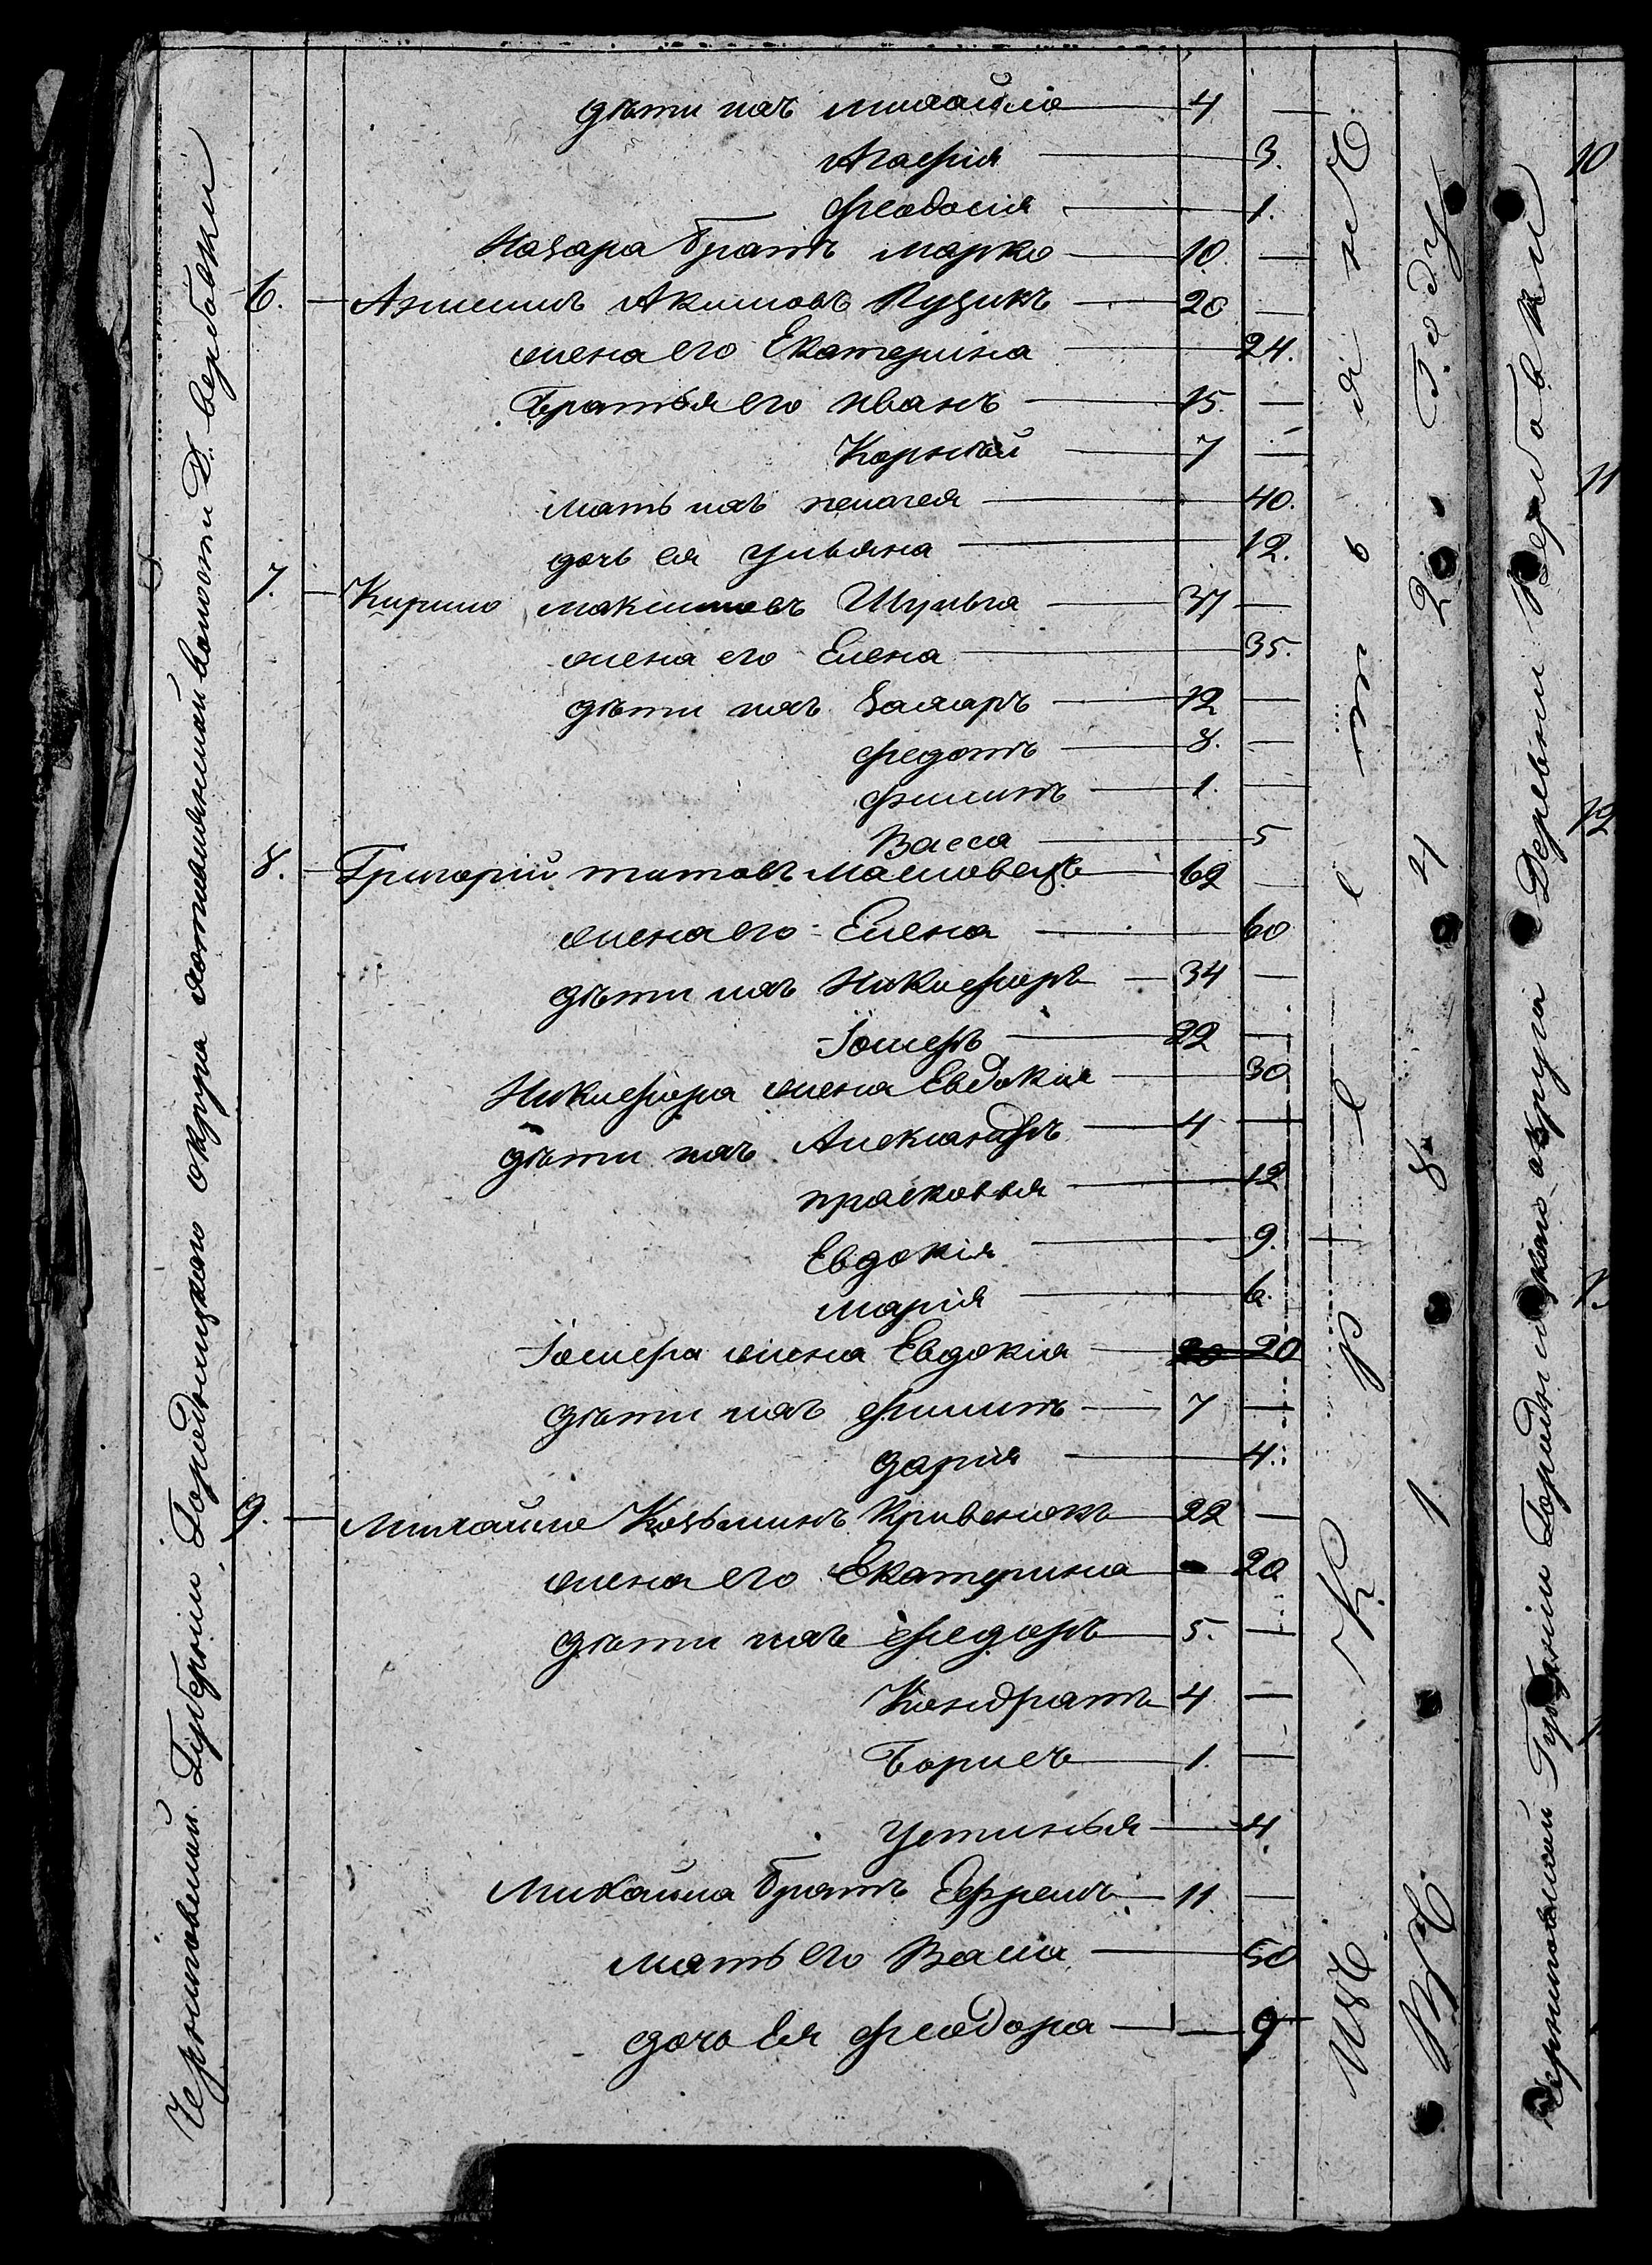 дѣти ихъ михайло 4 —
Агафія 3.
феодосія 1.
Назара братъ марко 10. —
6. Акимовъ Кузикъ 20 —
жена его Екатерина 24.
братья его иванъ 15. —
Корнѣй 7 —
мать ихъ пелагея 40.
дочь ея ульяна 12.
7. Кирило максимовъ Шульга 37 —
жена его Елена 35.
дѣти ихъ Захаръ 12 —
федотъ 8. —
филипъ 1. —
Васса 5
8. Григорій титовъ 62 —
жена его Елена 60
дѣти ихъ Никифоръ 34 —
Іосифъ 22 —
Никифора жена Евдокія 30
дѣти ихъ Александръ 4 —
прасковья 12
Евдокія 9.
марія 6.
Іосифа жена Евдокія 20 20
дѣти ихъ филипъ 7 —
дарія 4.
9. Михайло Козьминъ Кривенокъ 22 —
жена его Екатерина 20
дѣти ихъ федоръ 5. —
Кондратъ 4 —
борисъ 1. —
устинья 4
Михайла братъ Ефремъ 11. —
мать его Васса 50
дочь Ея феодора 9
Черниговской Губерніи Городницкаго округа волости Д. вербовки
Изъ К р е е с т ь я н ъ
Въ 1 8 2 Году
Черниговской Губерніи Городницкаго округа Деревни Вербовки
10
11
12